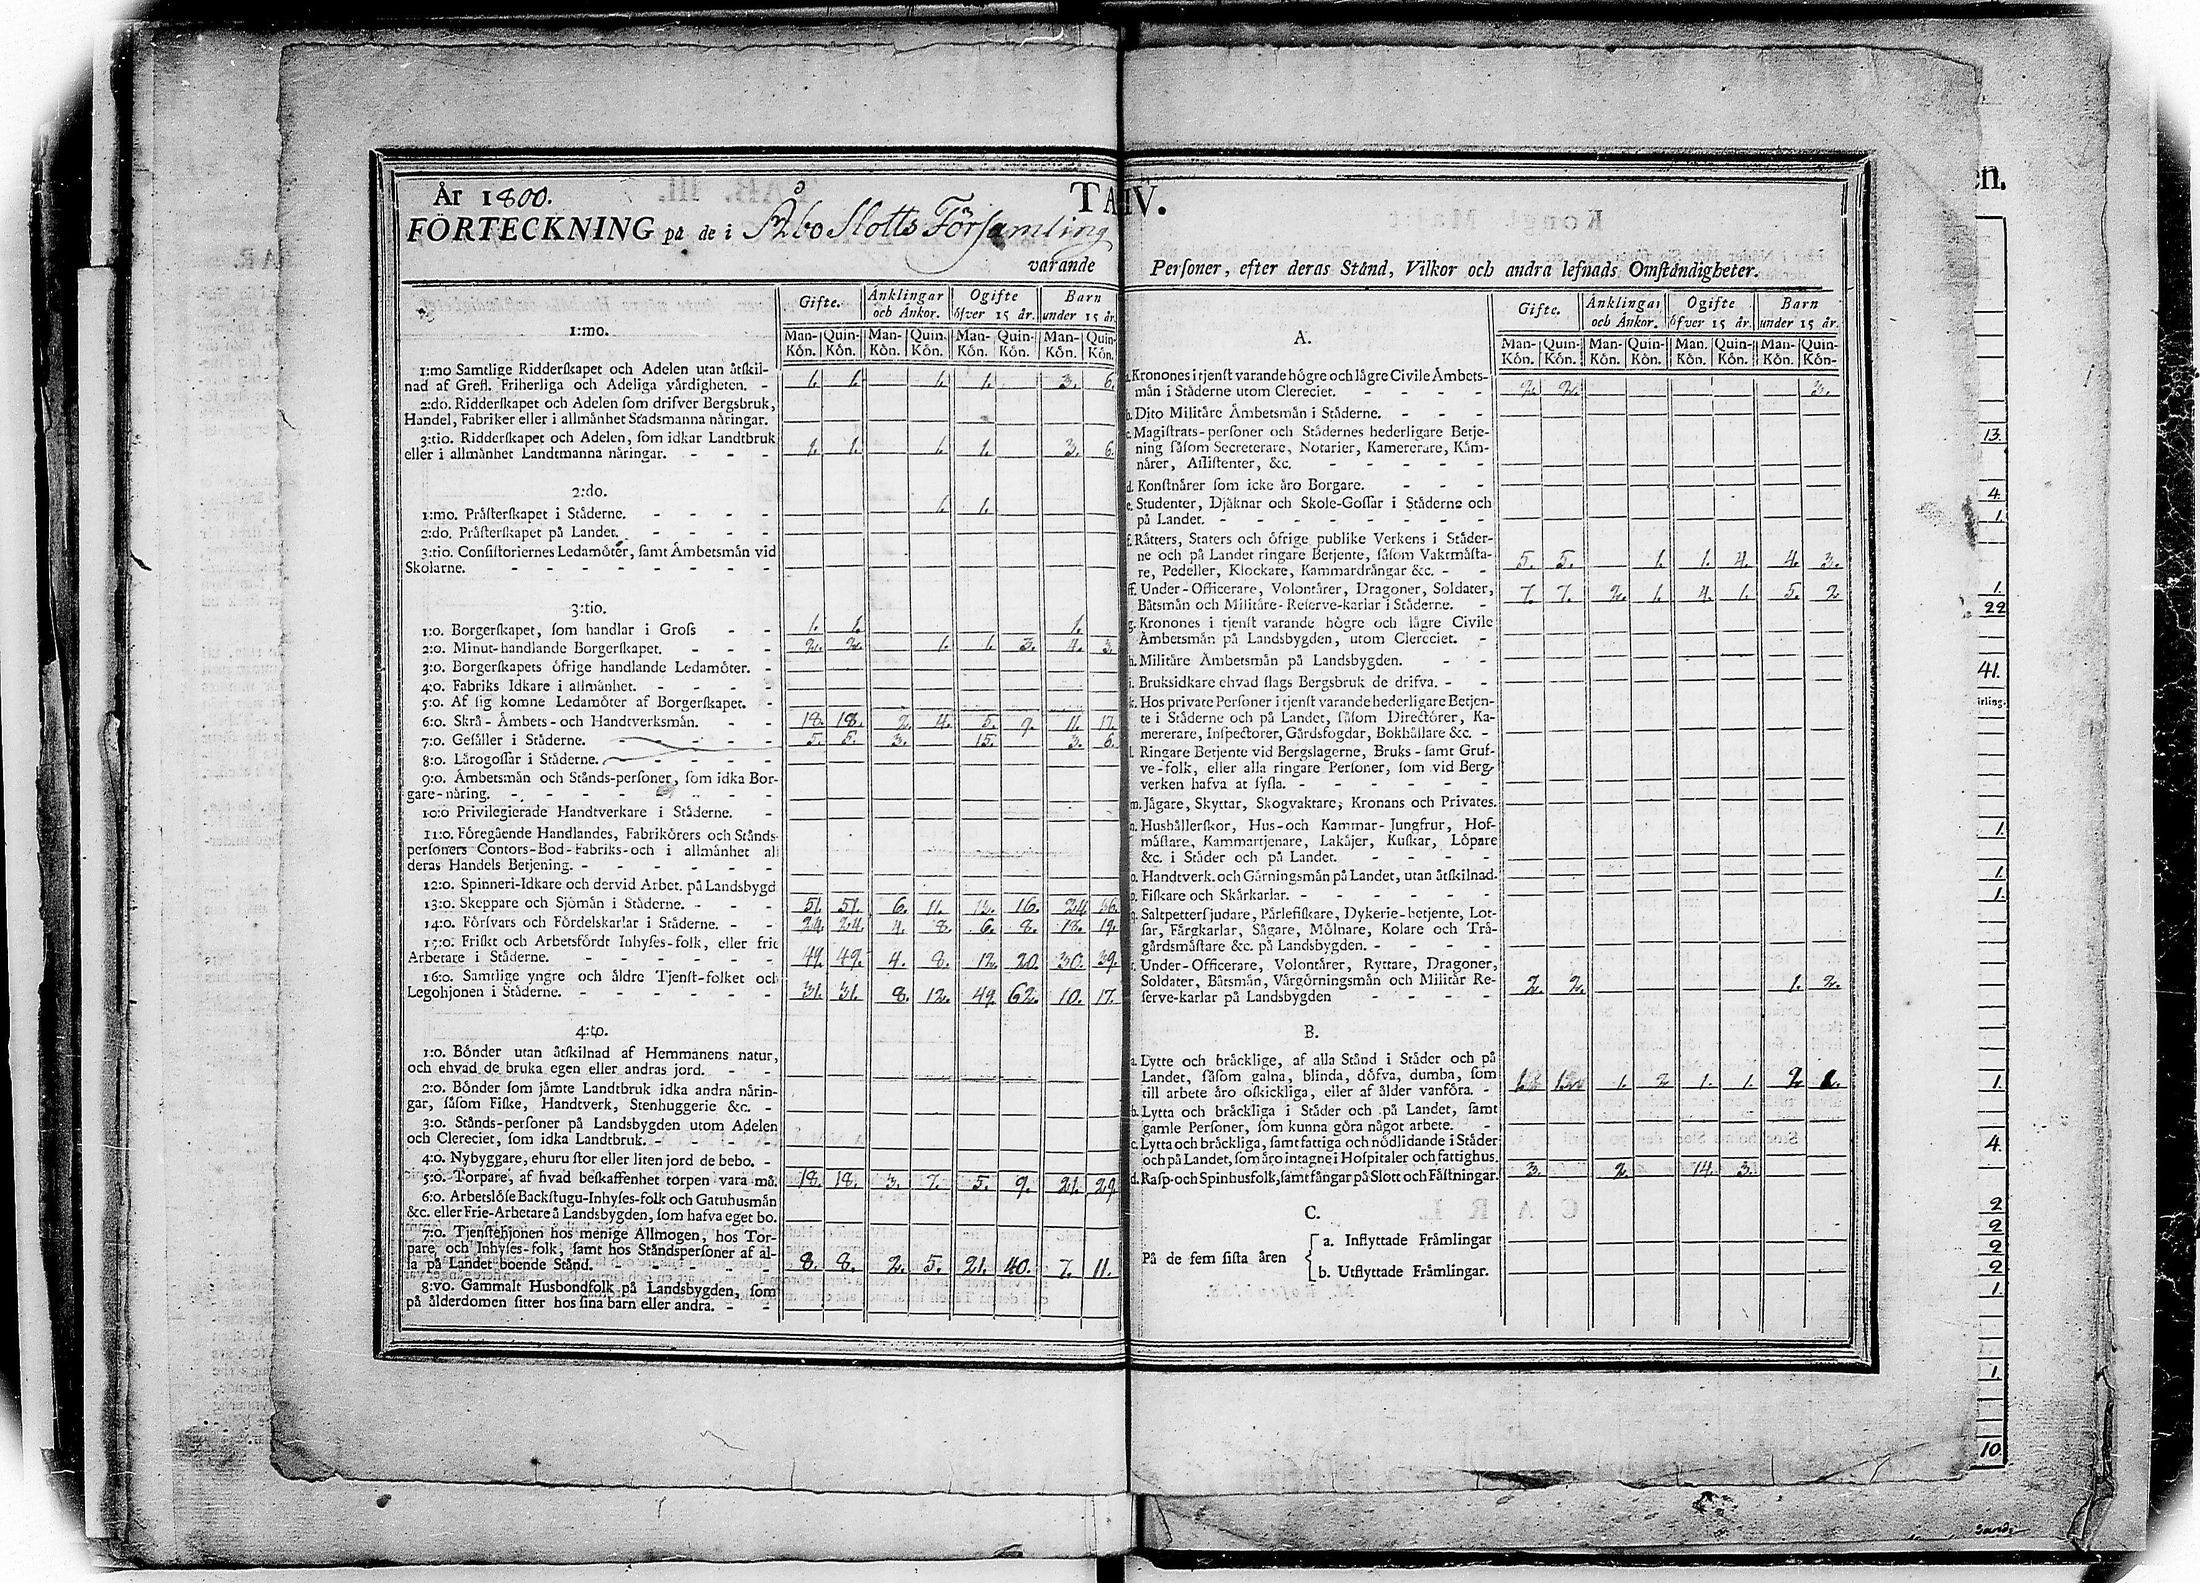 År 1800.
TAB. IV.
FÖRTECKNING på de i Åbo Slotts Församling
varande
Gifte. Änklingar och Änkor. Ogifte öfver 15 år. Barn under 15 år.
1:mo.
Man-Kön. Quin-Kön. Man-Kön. Quin-Kön. Man-Kön. Quin-Kön. Man-Kön. Quin-Kön.
1:mo Samtlige Ridderskapet och Adelen utan åtskil-
nad af Grefl. Friherliga och Adeliga värdigheten. - 1. 1. 1. 1. 3. 6.
2:do. Ridderskapet och Adelen som drifver Bergsbruk,
Handel, Fabriker eller i allmänhet Stadsmanna näringar.
3:tio. Ridderskapet och Adelen, som idkar Landtbruk
eller i allmänhet Landtmanna näringar. - - - 1. 1. 1. 1. 3. 6.
2:do.
1:mo. Prästerskapet i Städerne. - - - - 1. 1.
2:do. Prästerskapet på Landet. - - - -
3:tio. Consistoriernes Ledamöter, samt Ämbetsmän vid
Skolarne. - - - - - - -
3:tio.
1:o. Borgerskapet, som handlar i Gross - - 1. 1. 1.
2:o. Minut-handlande Borgerskapet. - - - 2. 2. 1. 1. 3. 4. 3
3:o. Borgerskapets öfrige handlande Ledamöter. -
4:o. Fabriks Idkare i allmänhet. - - - -
5:o. Af sig komne Ledamöter af Borgerskapet. -
6:o. Skrå-Ämbets-och Handtverksmän. - - 18. 18. 2 4. 5. 9. 11. 17.
7:o. Gesäller i Städerne. - - - - 5. 5. 3. 15. 3. 6.
8:o. Lärogossar i Städerne. - - - -
9:o. Ämbetsmän och Stånds-personer, som idka Bor-
gare-näring. - - - - - -
10:o Privilegierade Handtverkare i Städerne. -
11:o. Föregående Handlandes, Fabrikörers och Stånds-
personers Contors-Bod-Fabriks-och i allmänhet al
deras Handels Betjening. - - - - -
12:o. Spinneri-Idkare och dervid Arbet. på Landsbygd
13:o. Skeppare och Sjömän i Städerne. - - - 51. 51. 6. 11. 13. 16. 24 36.
14:o. Försvars och Fördelskarlar i Städerne. - - 24. 24. 4. 8. 6. 8. 18. 19.
15:o. Friskt och Arbetsfördt Inhyses-folk, eller frie
Arbetare i Städerne. - - - - - 49. 49. 4. 8. 12. 20. 30. 39.
16:o. Samtlige yngre och äldre Tjenst-folket och
Legohjonen i Städerne. - - - - - 31. 31. 8. 12. 49. 62. 10. 17.
4:to.
1:o. Bönder utan åtskilnad af Hemmanens natur,
och ehvad de bruka egen eller andras jord. - -
2:o. Bönder som jämte Landtbruk idka andra närin-
gar, såsom Fiske, Handtverk, Stenhuggerie &c. -
3:o. Stånds-personer på Landsbygden utom Adelen
och Clereciet, som idka Landtbruk. - - - -
4:o. Nybyggare, ehuru stor eller liten jord de bebo. -
5:o. Torpare, af hvad beskaffenhet torpen vara må. 18. 18. 3. 7. 5. 9. 21. 29.
6:o. Arbetslöse Backstugu-Inhyses-folk och Gatuhusmän
&c. eller Frie-Arbetare å Landsbygden, som hafva eget bo.
7:o. Tjenstehjonen hos menige Allmogen, hos Tor-
pare och Inhyses-folk, samt hos Ståndspersoner af al-
la på Landet boende Stånd. - - - - 8. 8. 2. 5. 21. 40. 7. 11.
8:vo. Gammalt Husbondfolk på Landsbygden, som
på ålderdomen sitter hos sina barn eller andra. - -
Personer, efter deras Stånd, Vilkor och andra lefnads Omständigheter.
Gifte. Änklingar och Änkor. Ogifte öfver 15 år. Barn under 15 år.
A.
Man-Kön. Quin-Kön. Man-Kön. Quin-Kön. Man. Kön. Quin-Kön. Man-Kön. Quin-Kön-
a. Kronones i tjenst varande högre och lägre Civile Ämbets-
män i Städerne utom Clereciet. - - - - 2. 2. 3.
b. Dito Militäre Ämbetsmän i Städerne. - - -
c. Magistrats-personer och Städernes hederligare Betje-
ning såsom Secreterare, Notarier, Kamererare, Käm-
närer, Assistenter, &c. - - - - -
d. Konstnärer som icke äro Borgare. - - -
e. Studenter, Djäknar och Skole-Gossar i Städerne och
på Landet. - - - - - - -
f. Rätters, Staters och öfrige publike Verkens i Städer-
ne och på Landet ringare Betjente, såsom Vaktmästa-
re, Pedeller, Klockare, Kammardrängar &c. - - 5. 5. 1. 1. 4. 4. 3.
ff. Under-Officerare, Volontärer, Dragoner, Soldater,
Båtsmän och Militäre-Reserve-karlar i Städerne. - 7. 7. 2. 1. 4. 1. 5. 2
g. Kronones i tjenst varande högre och lägre Civile
Ämbetsmän på Landsbygden, utom Clereciet. -
h. Militäre Ämbetsmän på Landsbygden. - -
i. Bruksidkare ehvad slags Bergsbruk de drifva. - -
k. Hos private Personer i tjenst varande hederligare Betjen-
te i Städerne och på Landet, såsom Directörer, Ka-
mererare, Inspectorer, Gårdsfogdar, Bokhållare &c. -
l. Ringare Betjente vid Bergslagerne, Bruks-samt Gruf-
ve-folk, eller alla ringare Personer, som vid Berg-
verken hafva at syssla. - - - - -
m. Jägare, Skyttar, Skogvaktare, Kronans och Privates.
n. Hushållerskor, Hus-och Kammar-Jungfrur, Hof-
mästare, Kammartjenare, Lakäjer, Kuskar, Löpare
&c. i Städer och på Landet. - - - -
o. Handtverk. och Gärningsmän på Landet, utan åtskilnad.
p. Fiskare och Skärkarlar. - - - - -
q. Saltpettersjudare, Pärlefiskare, Dykerie-betjente, Lot-
sar, Färgkarlar, Sågare, Mölnare, Kolare och Trä-
gårdsmästare &c. på Landsbygden. - - - -
r. Under-Officerare, Volontärer, Ryttare, Dragoner,
Soldater, Båtsmän, Värgörningsmän och Militär Re-
serve-karlar på Landsbygden - - - - 2. 2. 1. 2.
B.
a. Lytte och bräcklige, af alla Stånd i Städer och på
Landet, såsom galna, blinda, döfva, dumba, som
till arbete äro oskickliga, eller af ålder vanföra. - 1. 2 1. 1.
b. Lytta och bräckliga i Städer och på Landet, samt
gamle Personer, som kunna göra något arbete. -
c. Lytta och bräckliga, samt fattiga och nödlidande i Städer
och på Landet, som äro intagne i Hospitaler och fattighus. 3. 2. 14. 3.
d. Rasp-och Spinhusfolk, samt fångar på Slott och Fästningar.
C.
På de fem sista åren
a. Inflyttade Främlingar
b. Utflyttade Främlingar.
en.
13.
4.
1.
1.
22
41.
irling.
1.
1.
1.
1.
4.
2
2
2
2
1.
1
10.